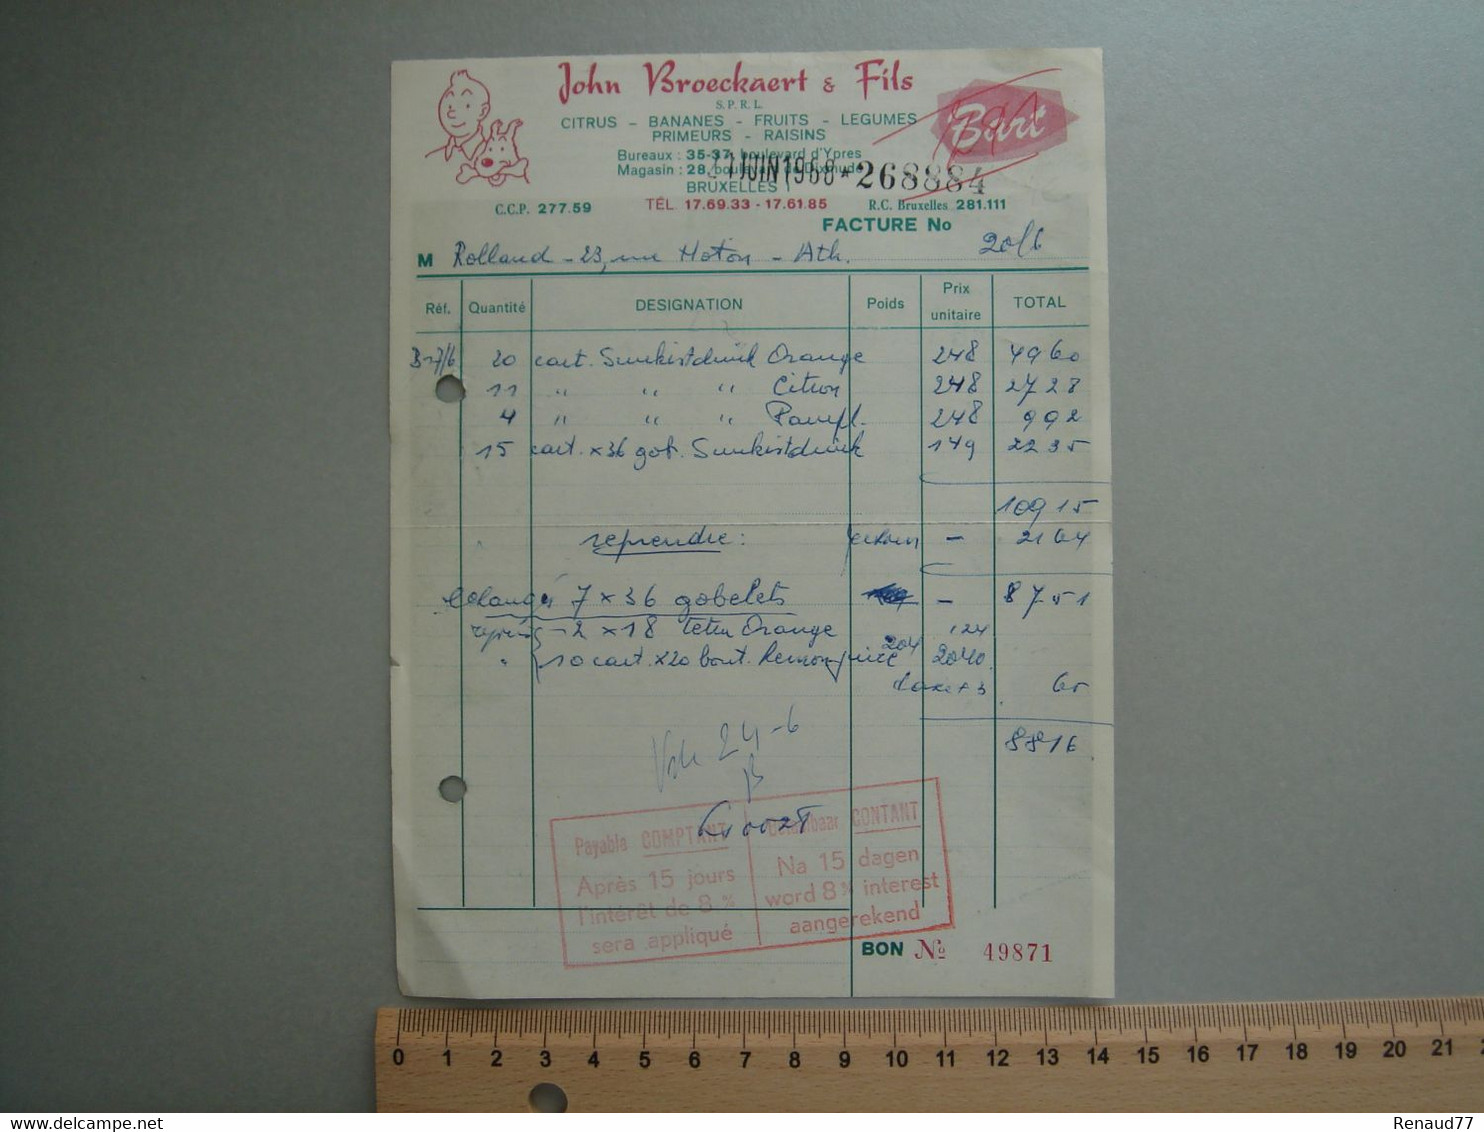 John Broeckaert & Fils
S.P.R.L.
CITRUS - BANANES - FRUITS - LEGUMES
PRIMEURS - RAISINS
Bart
Bureaux : 35-37, boulevard d'Ypres
Magasin : 28,
BRUXELLES
JUIN 1968 * 268884
C.C.P. 277.59
TÉL. 17.69.33 - 17.61.85
R.C. Bruxelles 281.111
FACTURE No
20/6
M Rolland - 23, rue Hoton - Ath.
Réf. Quantité DESIGNATION Poids Prix unitaire TOTAL
20 cart. Sunkistdrink Orange 248 4960
11 " " " Citron 248 2728
4 " " " Pampl. 248 992
15 cart. x 36 gob. Sunkistdrink 149 2235
10915
reprendre : - 2164
7 x 36 gobelets - 8751
- 2 x 18 Orange 124
" 10 cart. x 20 bout. 204 2040
taxe + 3 65
8816
24-6
Payable COMPTANT
Après 15 jours
l'intérêt de 8 %
sera appliqué
Betaalbaar CONTANT
Na 15 dagen
word 8 % interest
aangerekend
BON No 49871
0 1 2 3 4 5 6 7 8 9 10 11 12 13 14 15 16 17 18 19 20 21
delcampe.net
Renaud77